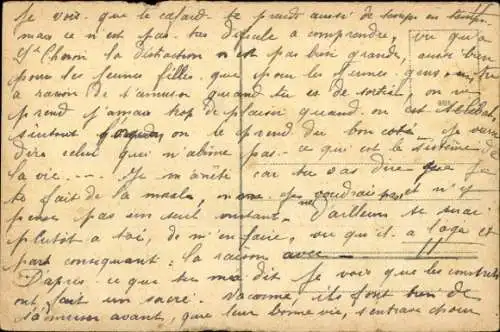 Je vois que le cafard te prend aussi de temps en temps
mais ce n'est pas très dificile a comprendre, vu qu'a
St Chéron la distraction n'est pas bien grande, aussi bien
pour les jeunes filles que pour les jeunes gens,
a raison de t'amuser quand tu es de sortie, on ne
prend jamais trop de plaisir quand on est
surtout on le prend du bon coté. Je veux
dire celui qui n'abime pas ce qui est le sistème de
la vie. --- Je m'arrête car tu vas dire que je
te fait de la morale, et n'y
pense pas un seul instant. D'ailleurs ce serai
plutôt a toi, de m'en faire, vu qu'il a l'age et
part conséquant: la raison avec —
D'après ce que tu me dit je vois que les conscrits
ont fait un sacré vacarme, ils font bien de
s'amuser avant, que leur bonne vie,